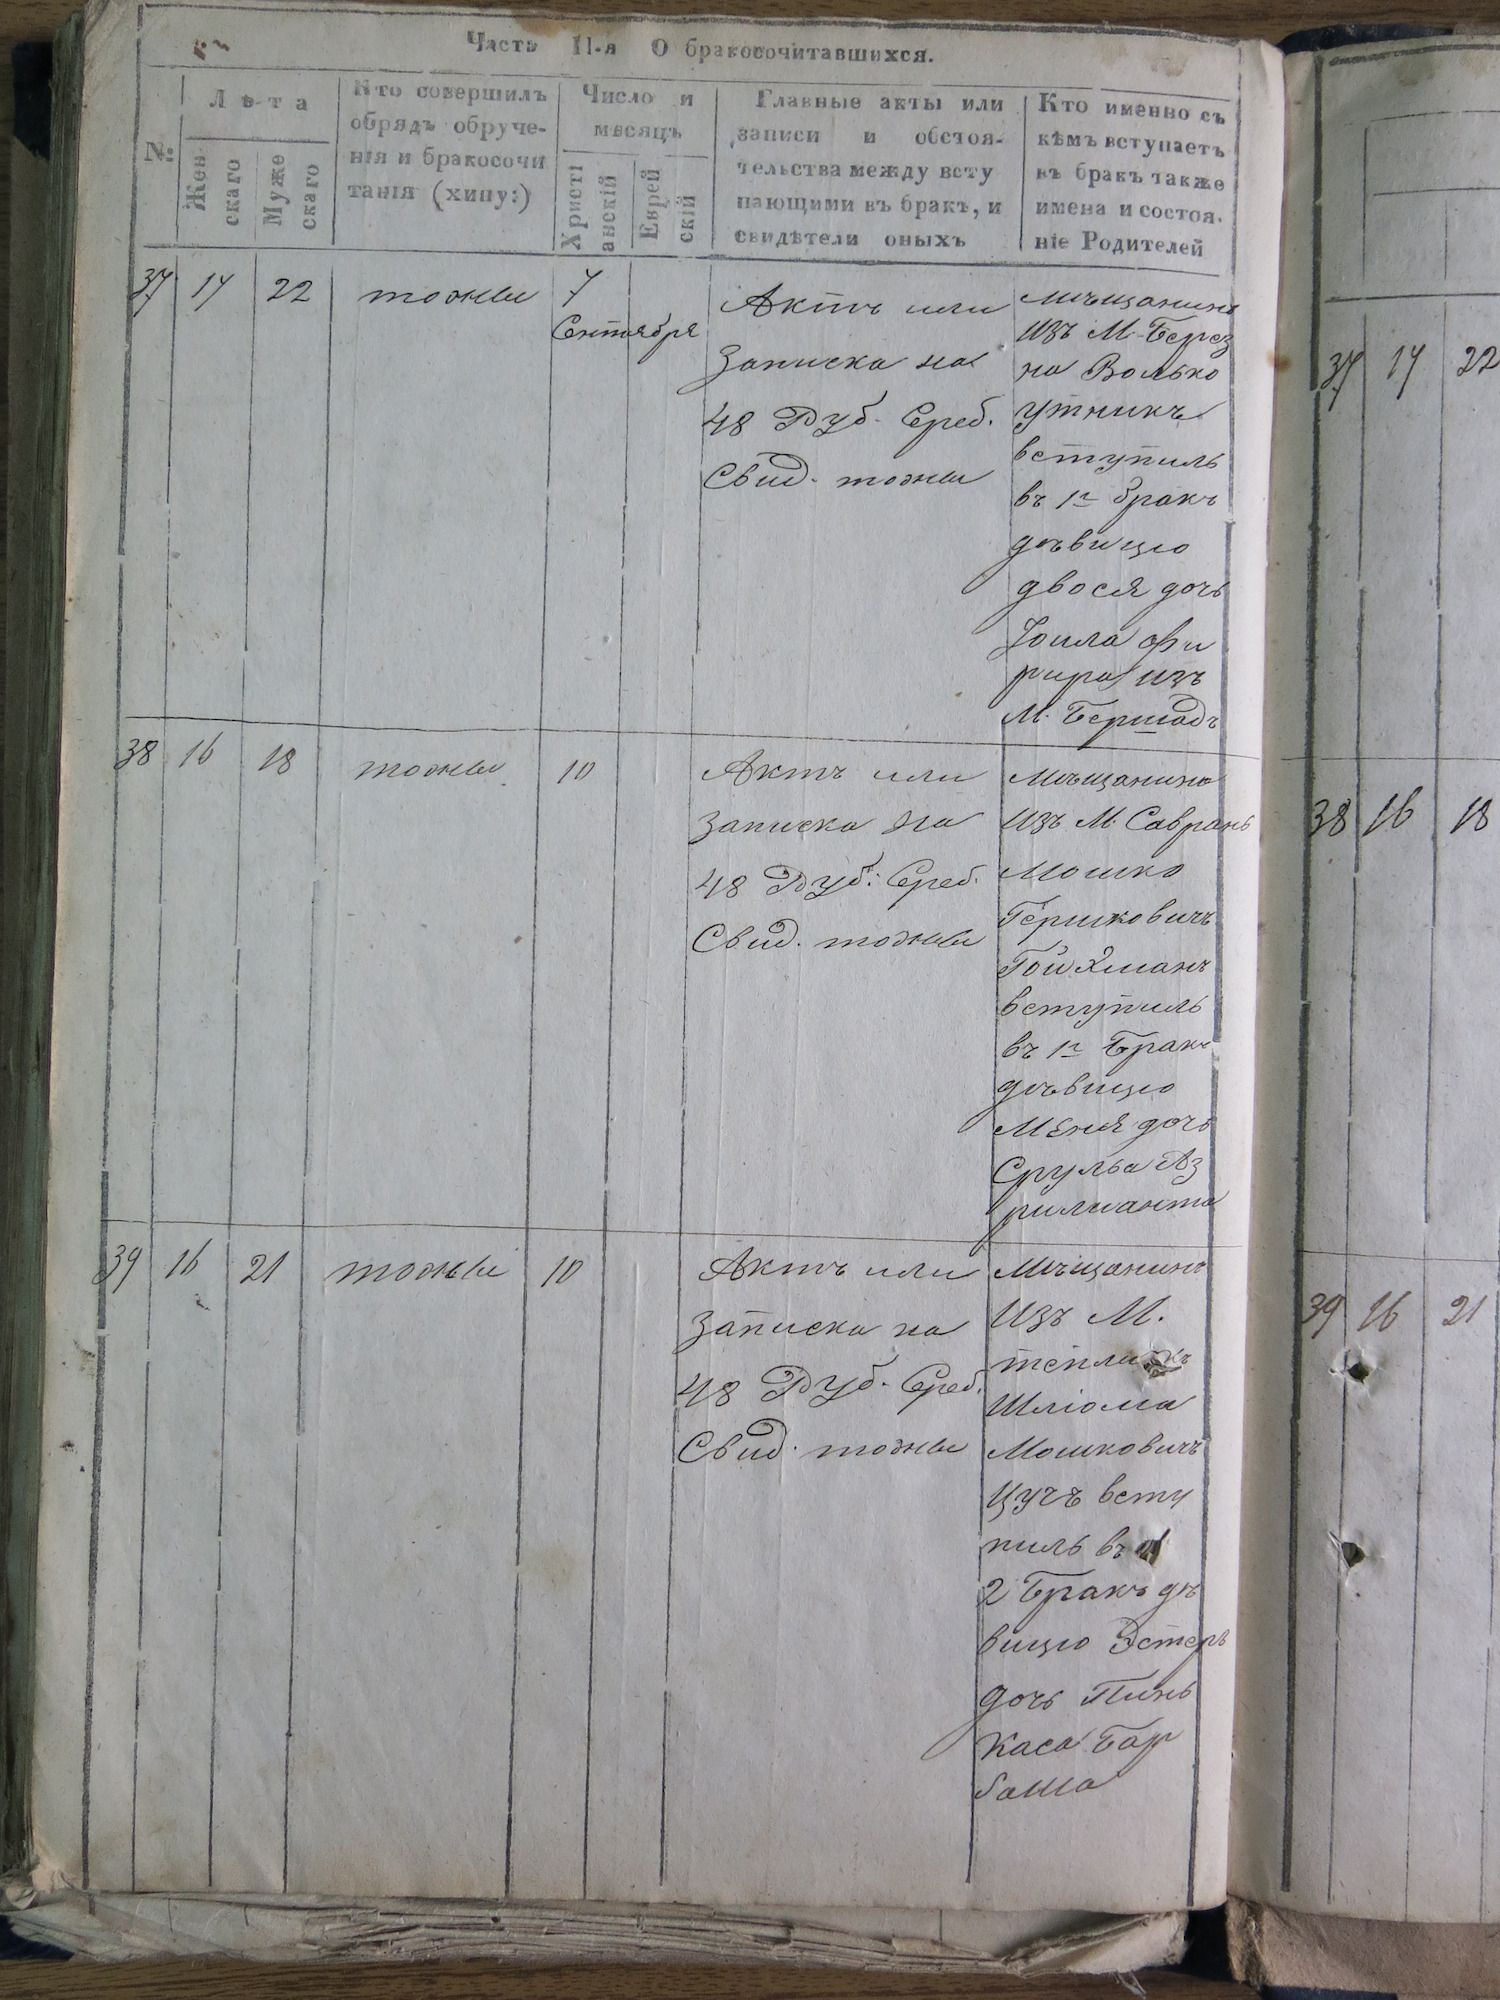 Часть II-я О бракосочитавшихся.
№:
Лѣта
Жен
скаго
Муже
скаго
Кто совершилъ
обрядъ обруче-
нія и бракосочи
танія (хипу:)
Число и
месяцъ
Христі
анскій
Еврей
скій
Главные акты или
записи и обстоя-
тельства между всту
пающими въ бракъ, и
свидѣтели оныхъ
Кто именно съ
кѣмъ вступаетъ
въ бракъ также
имена и состоя-
ніе Родителей
37 17 22 тожны 7
Сентября
Актъ или
Записка на
48 Руб. Сереб.
Свид. тожны
Мѣщанинъ
изъ М. Берез
на Волько
Утникъ
вступилъ
въ 1й бракъ
дѣвицю
двося дочь
Іоила Фи
рира изъ
М. Бершадъ
38 16 18 тожны 10
Актъ или
Записка на
48 Руб: Сереб.
Свид. тожны
Мѣщанинъ
изъ М. Саврань
Мошко
Гершковичъ
Гойхманъ
вступилъ
въ 1й Бракъ
дѣвицю
Меня дочь
Срульа Аз
рилианта
39 16 21 тожны 10
Актъ или
Записка на
48 Руб. Сереб.
Свид. тожны
Мѣщанинъ
Изъ М.
тепликъ
Шліома
Мошковичъ
Цучъ всту
пилъ въ
2 Бракъ дѣ
вицю Эстеръ
дочь Пинь
каса Бар
баша
37 17 22
38 16 18
39 16 21